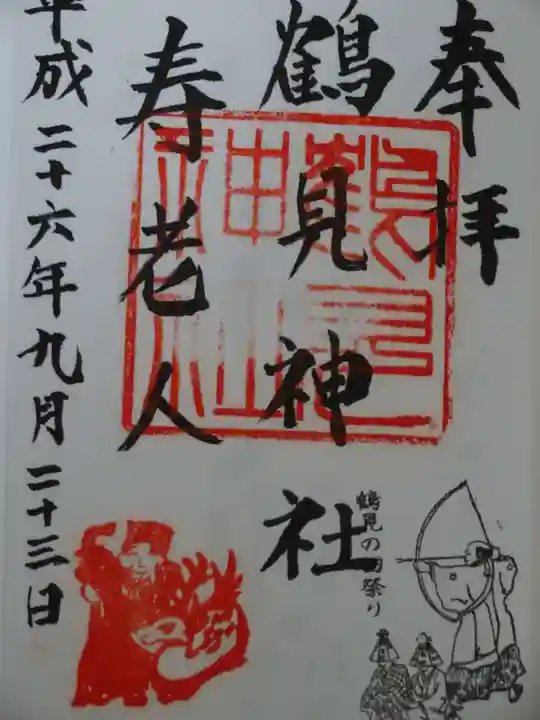 奉拝
鶴見神社
寿老人
平成二十六年九月二十三日
鶴見の田祭り
鶴見神社